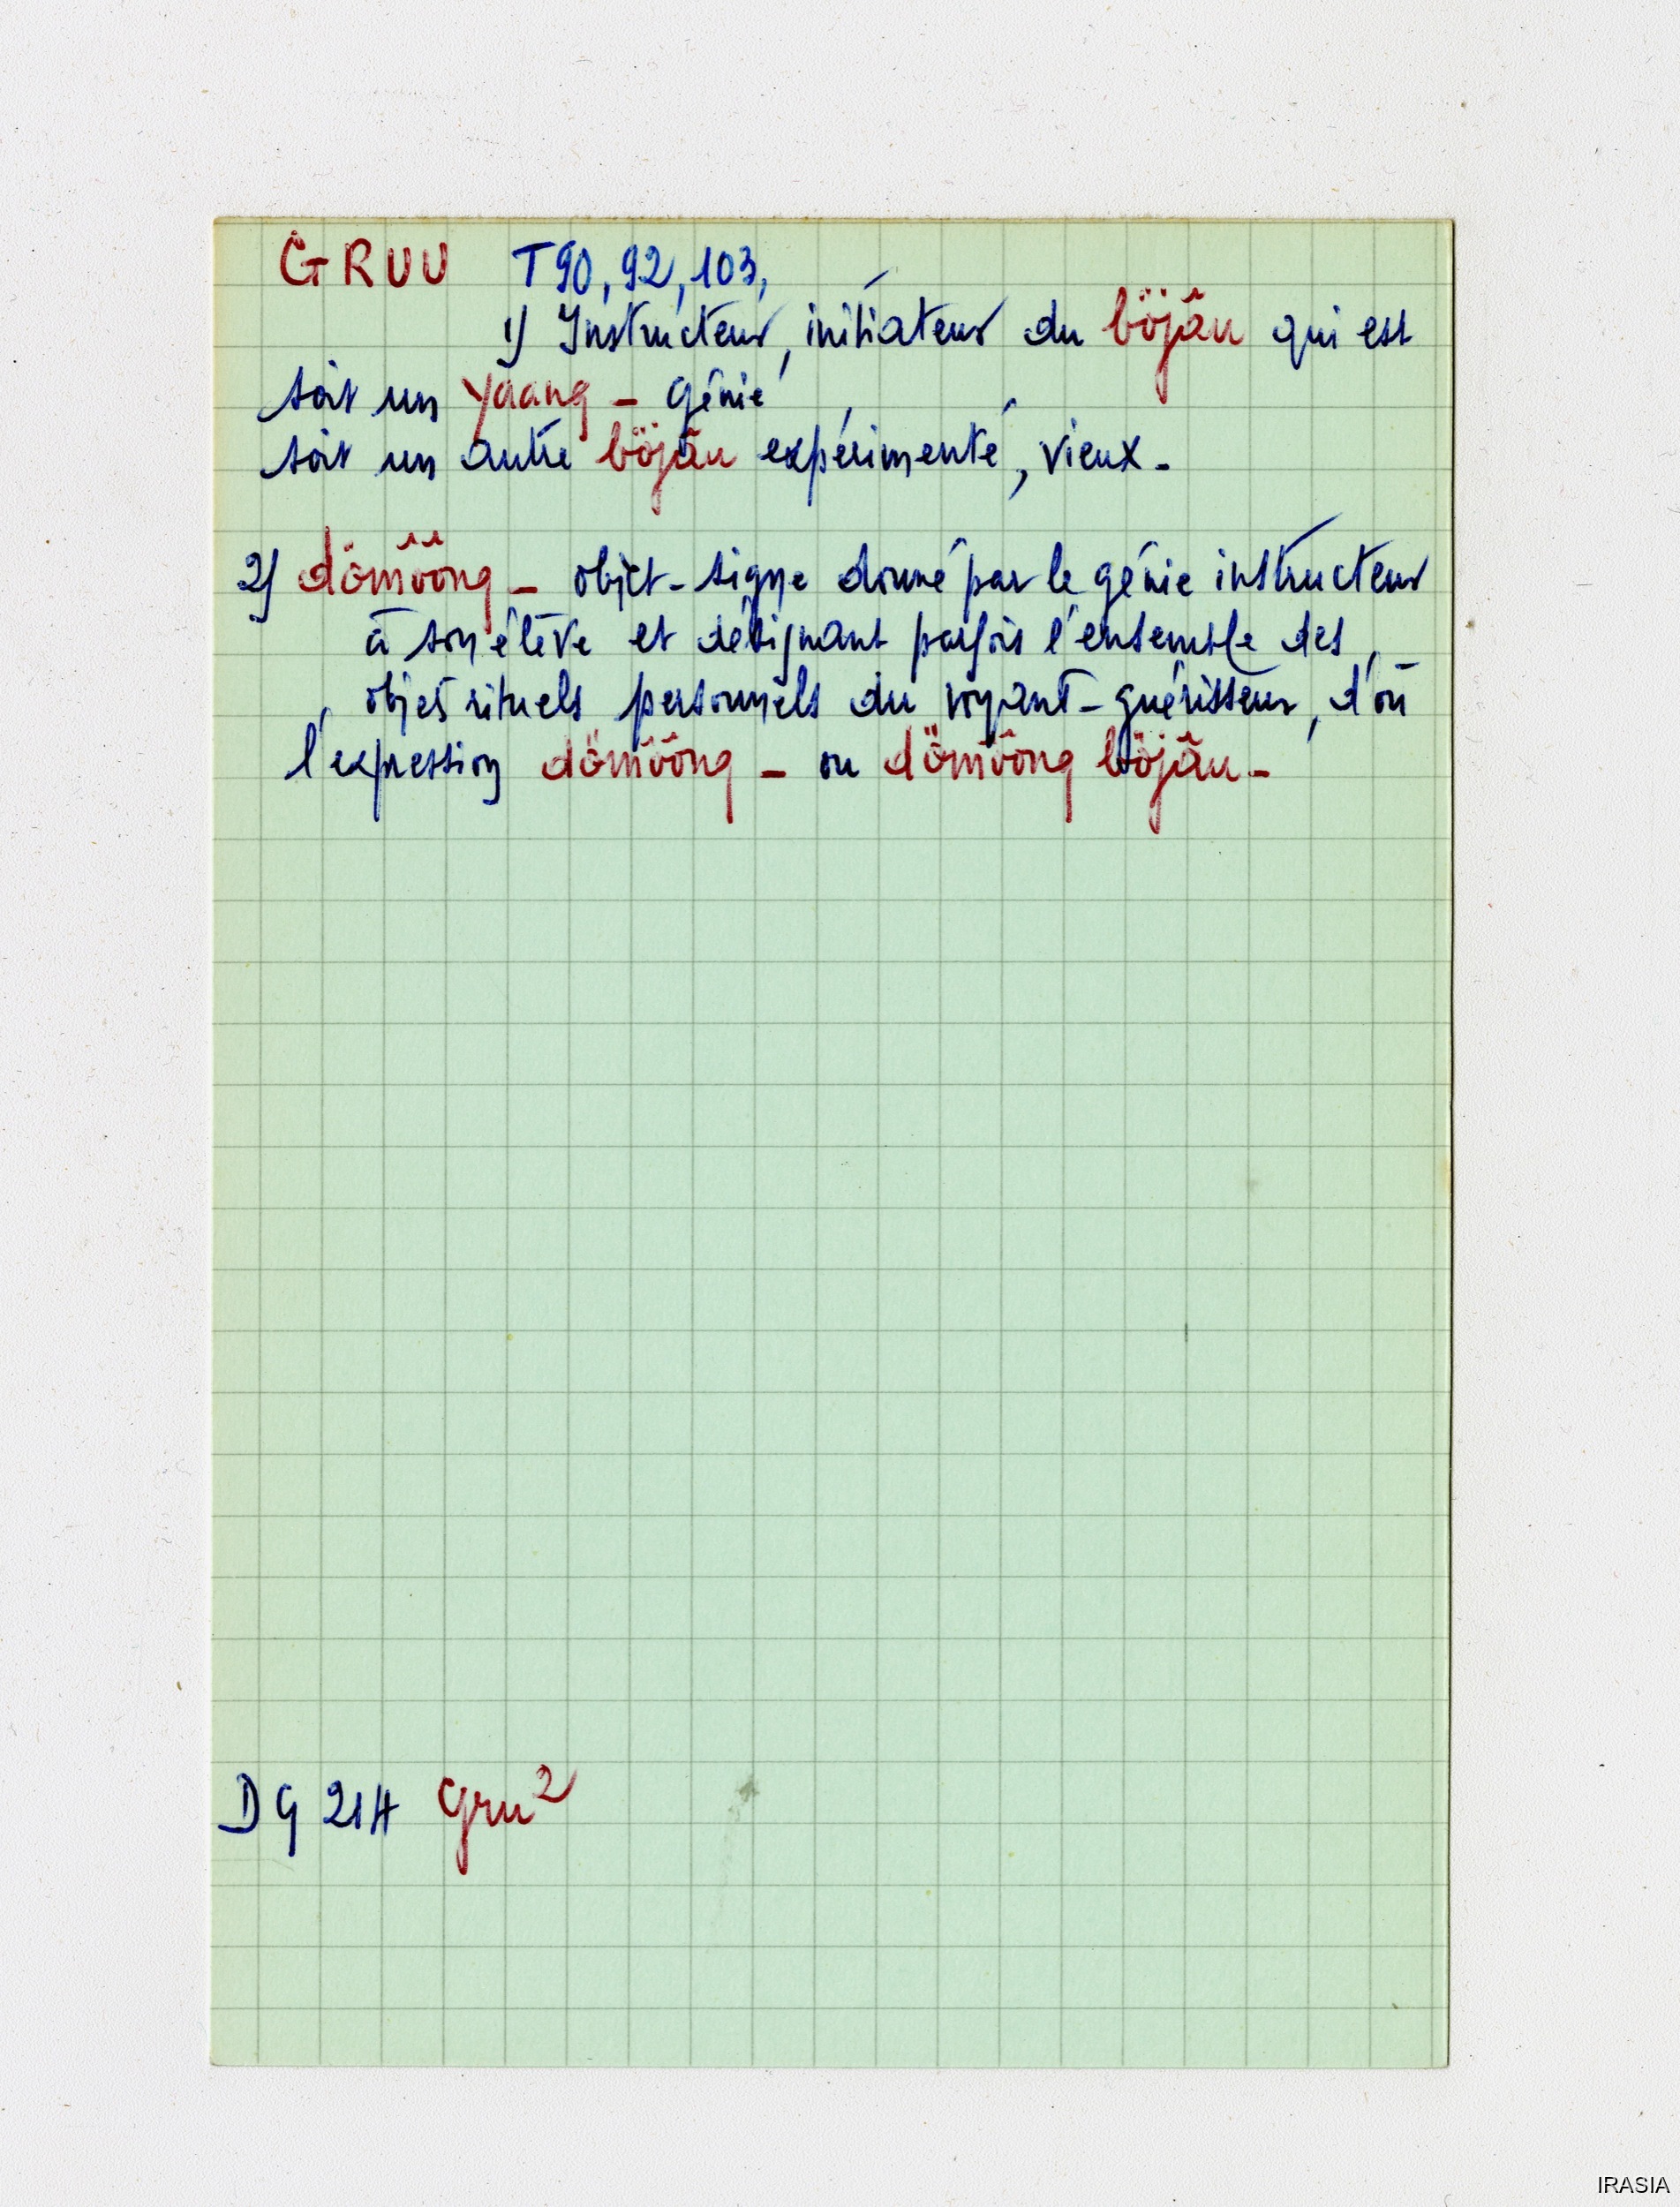 GRUU T90, 92, 103,
1) Instructeur, initiateur du böjâu qui est
soit un yaang – génie
soit un autre böjâu expérimenté, vieux –
2) dömôông – objet-signe donné par le génie instructeur
à son élève et désignant parfois l'ensemble des
objets rituels personnels du voyant-guérisseur, d'où
l'expression dömôông – ou dömôông böjâu –
DG 214 gru²
IRASIA